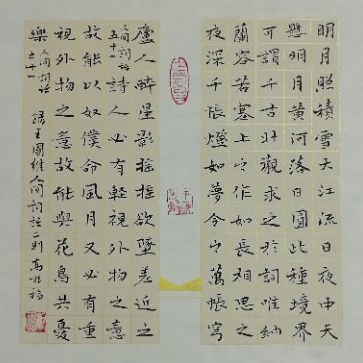 明月照積雪大江流日夜中天
懸明月黃河落日圓此種境界
可謂千古壯觀求之於詞唯納
蘭容若塞上之作如長相思之
夜深千帳燈如夢令之萬帳穹
廬人醉星影搖搖欲墜差近之
人間詞話五十一
詩人必有輕視外物之意
故能以奴僕命風月又必有重
視外物之意故能與花鳥共憂
樂
人間詞話
錄王國維人間詞話二則